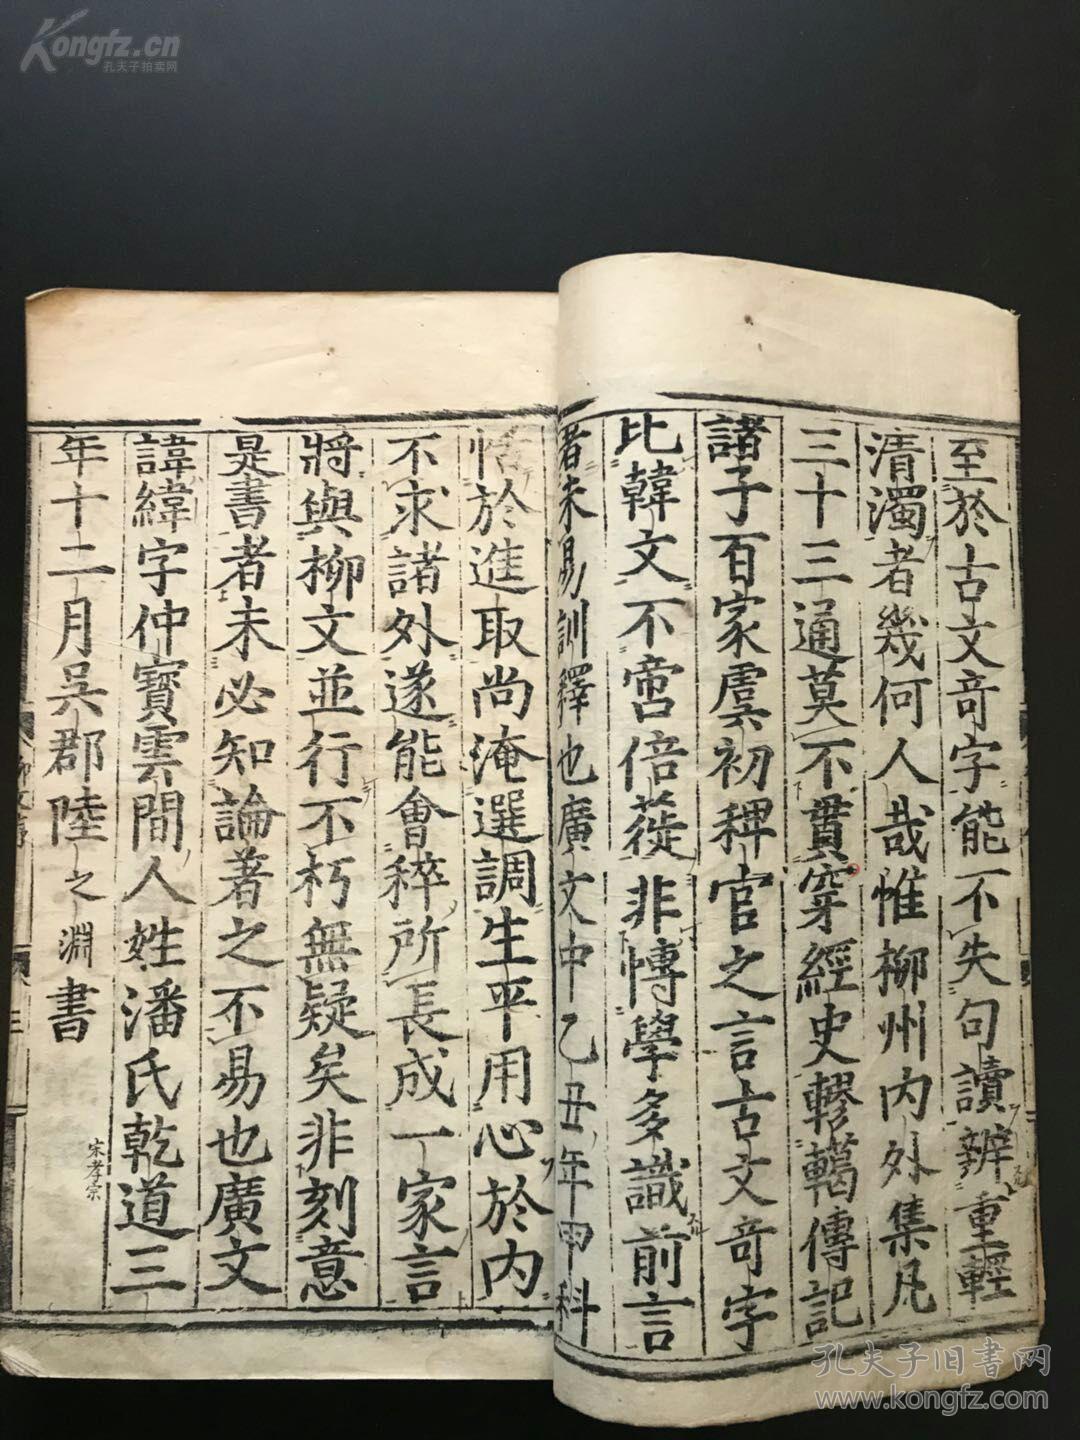 Kongfz.cn
孔夫子拍卖网
至於古文奇字能不失句讀辨重輕
清濁者幾何人哉惟柳州内外集凡
三十三通莫不貫穿經史轇轕傳記
諸子百家虞初稗官之言古文奇字
比韓文不啻倍蓰非慱學多識前言
者未易訓釋也廣文中乙丑年甲科
恬於進取尚淹選調生平用心於内
不求諸外遂能會稡所長成一家言
將與柳文並行不朽無疑矣非刻意
是書者未必知論著之不易也廣文
諱緯字仲寶雲間人姓潘氏乾道三
宋孝宗
年十二月吳郡陸之淵書
孔夫子旧书网
www.kongfz.com